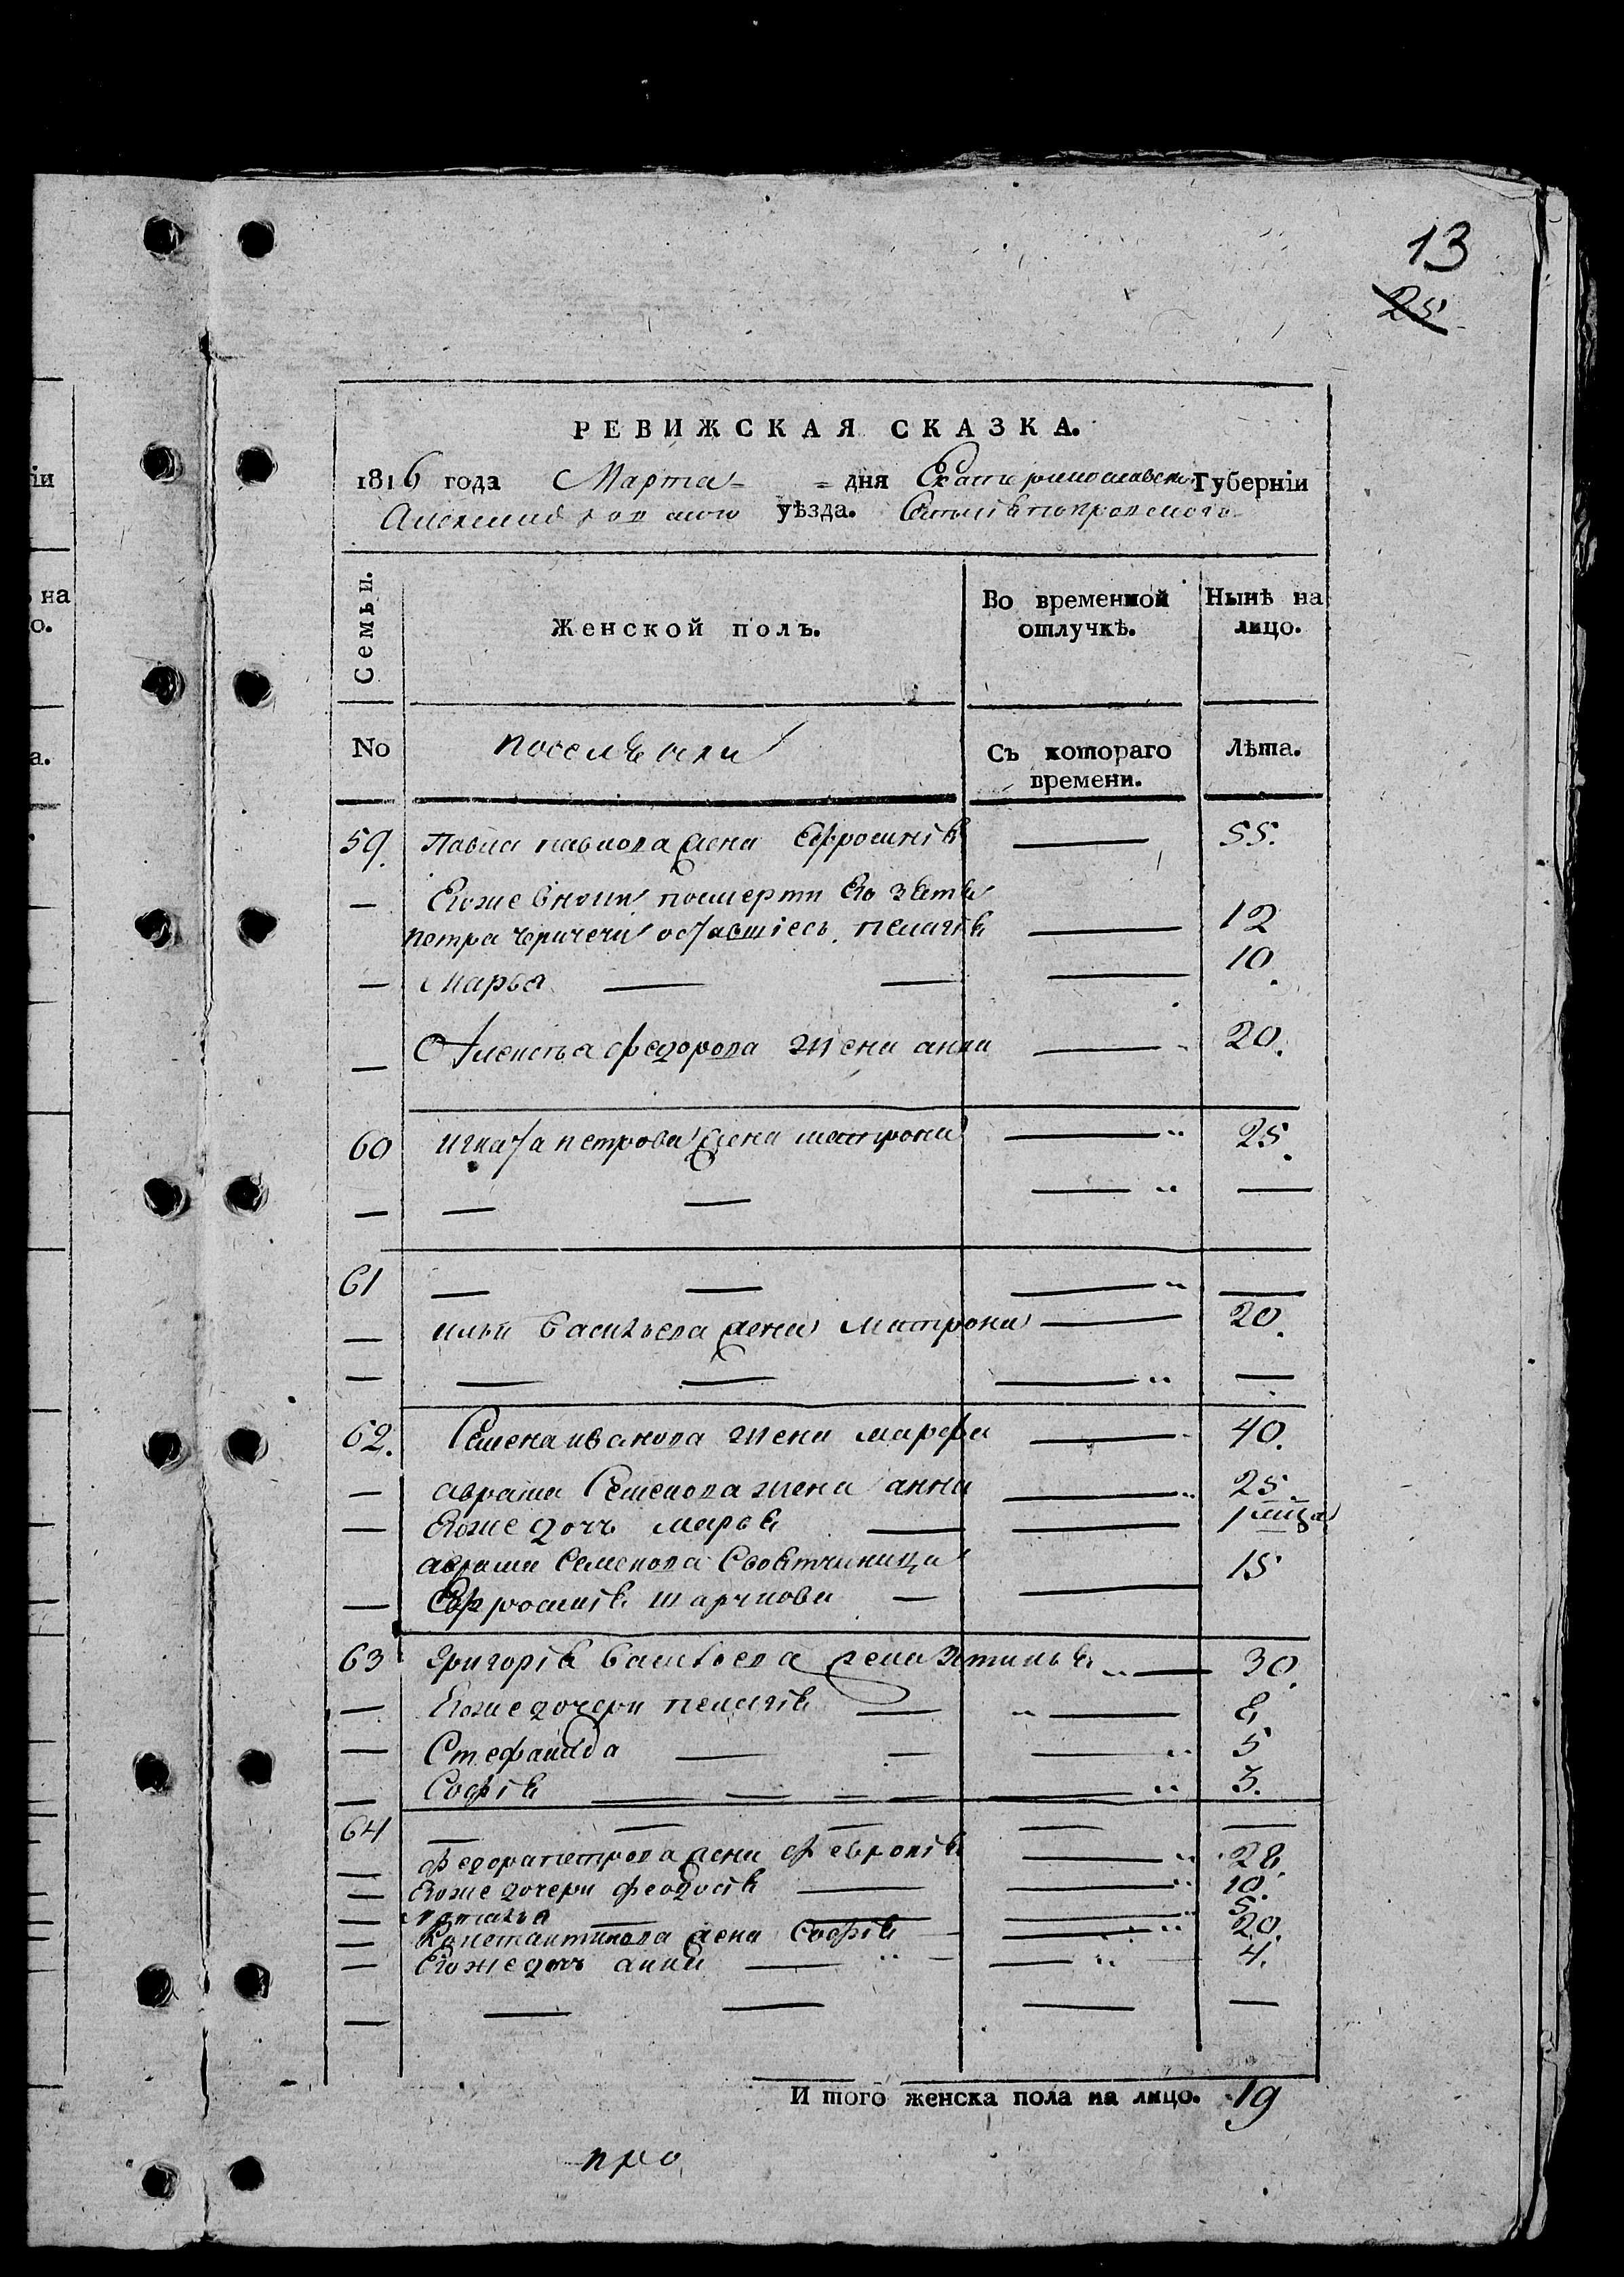 іи
на
о.
а.
13
25
РЕВИЖСКАЯ СКАЗКА.
1816 года Марта дня Екатеринославской Губерніи
Александровского уѣзда.
Семьи. Женской полъ. Во временной отлучкѣ. Нынѣ на лицо.
No поселяня Съ котораго времени. Лѣта.
59. Павла павлова жена Ефросинія 55.
Егоже внуки посмерти Его зятя
петра оставшіесь. пелагія 12
Марья 10.
Алексѣя федорова жена анна 20.
60 игната петрова жена матрона 25.
61
ильи Васильева жена Матрона 20.
62. Семена иванова жена марфа 40.
аврама Семенова жена анна 25.
Егоже дочь марья
аврама Семенова 15
Ефросинія
63 Григорія Васильева жена 30.
Егоже дочери пелагія 8
Стефанида 5
Софія 3.
64
федора петрова жена февронія 28.
Егоже дочери феодосія 10.
наталья 5
Константинова жена Софія 20.
Егоже дочь анна 4.
И того женска пола на лицо. 19
про